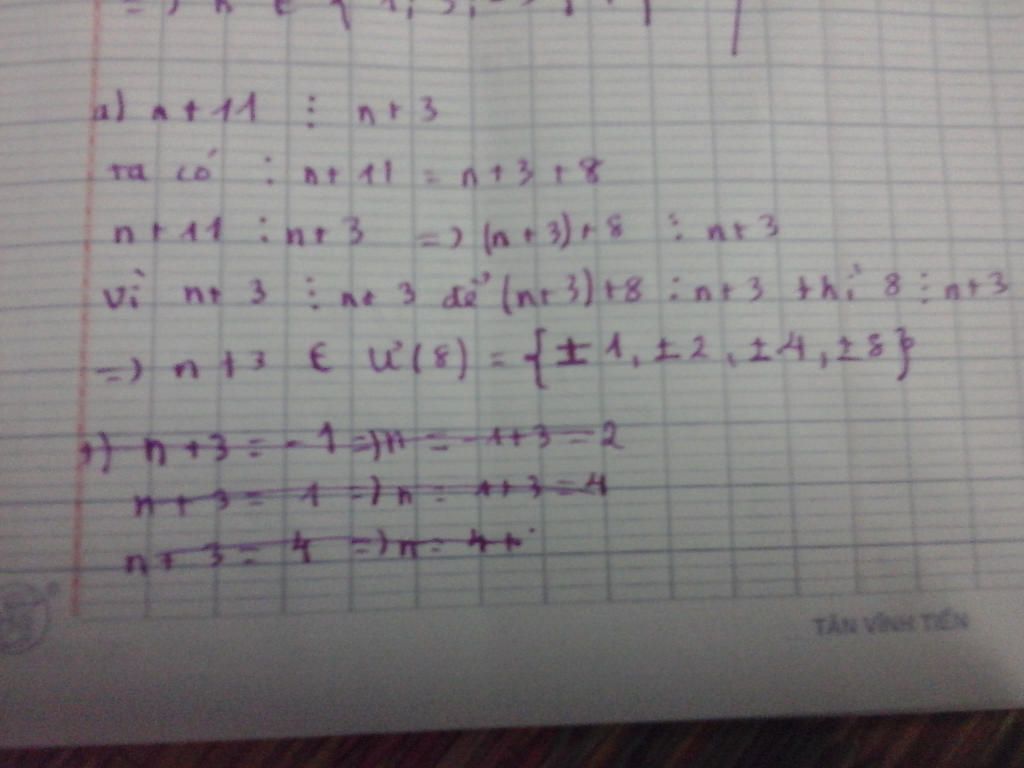 a) n + 11 ⋮ n + 3
ta có : n + 11 = n + 3 + 8
n + 11 ⋮ n + 3 => (n + 3) + 8 ⋮ n + 3
vì n + 3 ⋮ n + 3 để (n + 3) + 8 ⋮ n + 3 thì 8 ⋮ n + 3
=> n + 3 ∈ Ư(8) = {± 1, ± 2, ± 4, ± 8}
+) n + 3 = - 1 => n = - 1 + 3 = 2
n + 3 = 1 => n = 1 + 3 = 4
n + 3 = 4 => n = 4 +
TÂN VĨNH TIẾN